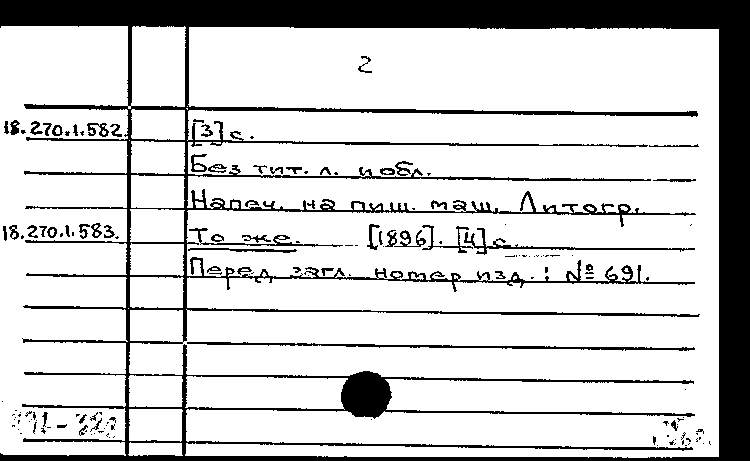 2
18.270.1.582. [3] с.
Без тит. л. и обл.
Напеч. на пиш. маш. Литогр.
18.270.1.583. То же. [1896]. [4] с.
Перед загл. номер изд.: № 691.